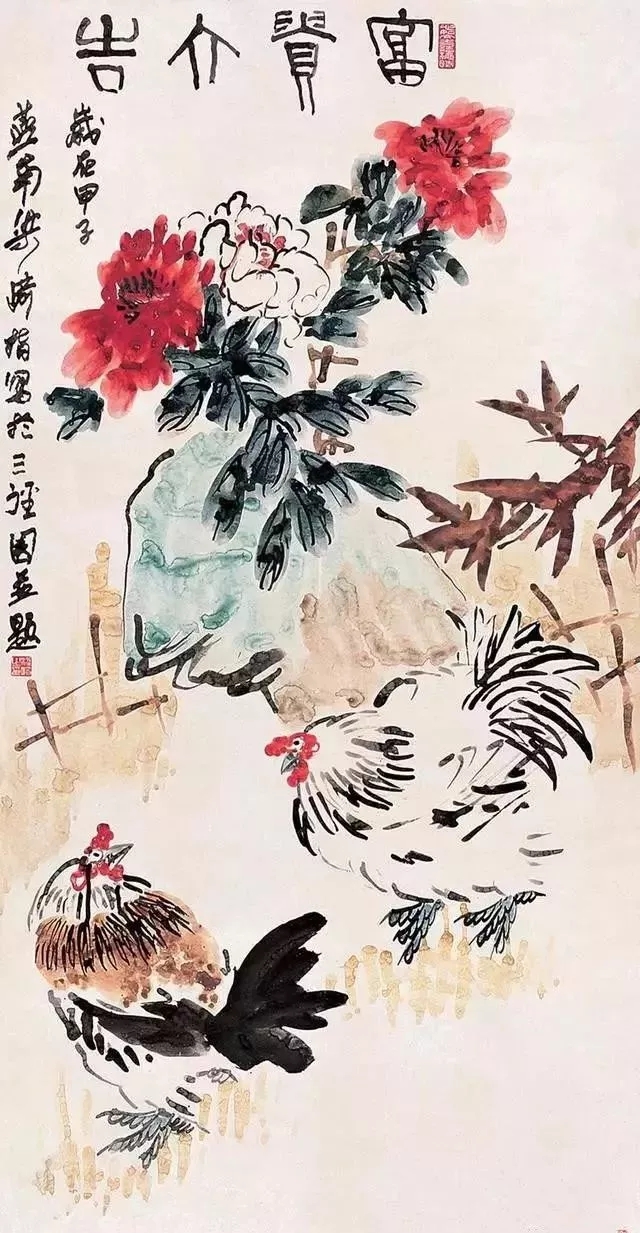 富貴大吉
歲在甲子
燕南梁崎指寫於三徑園並題